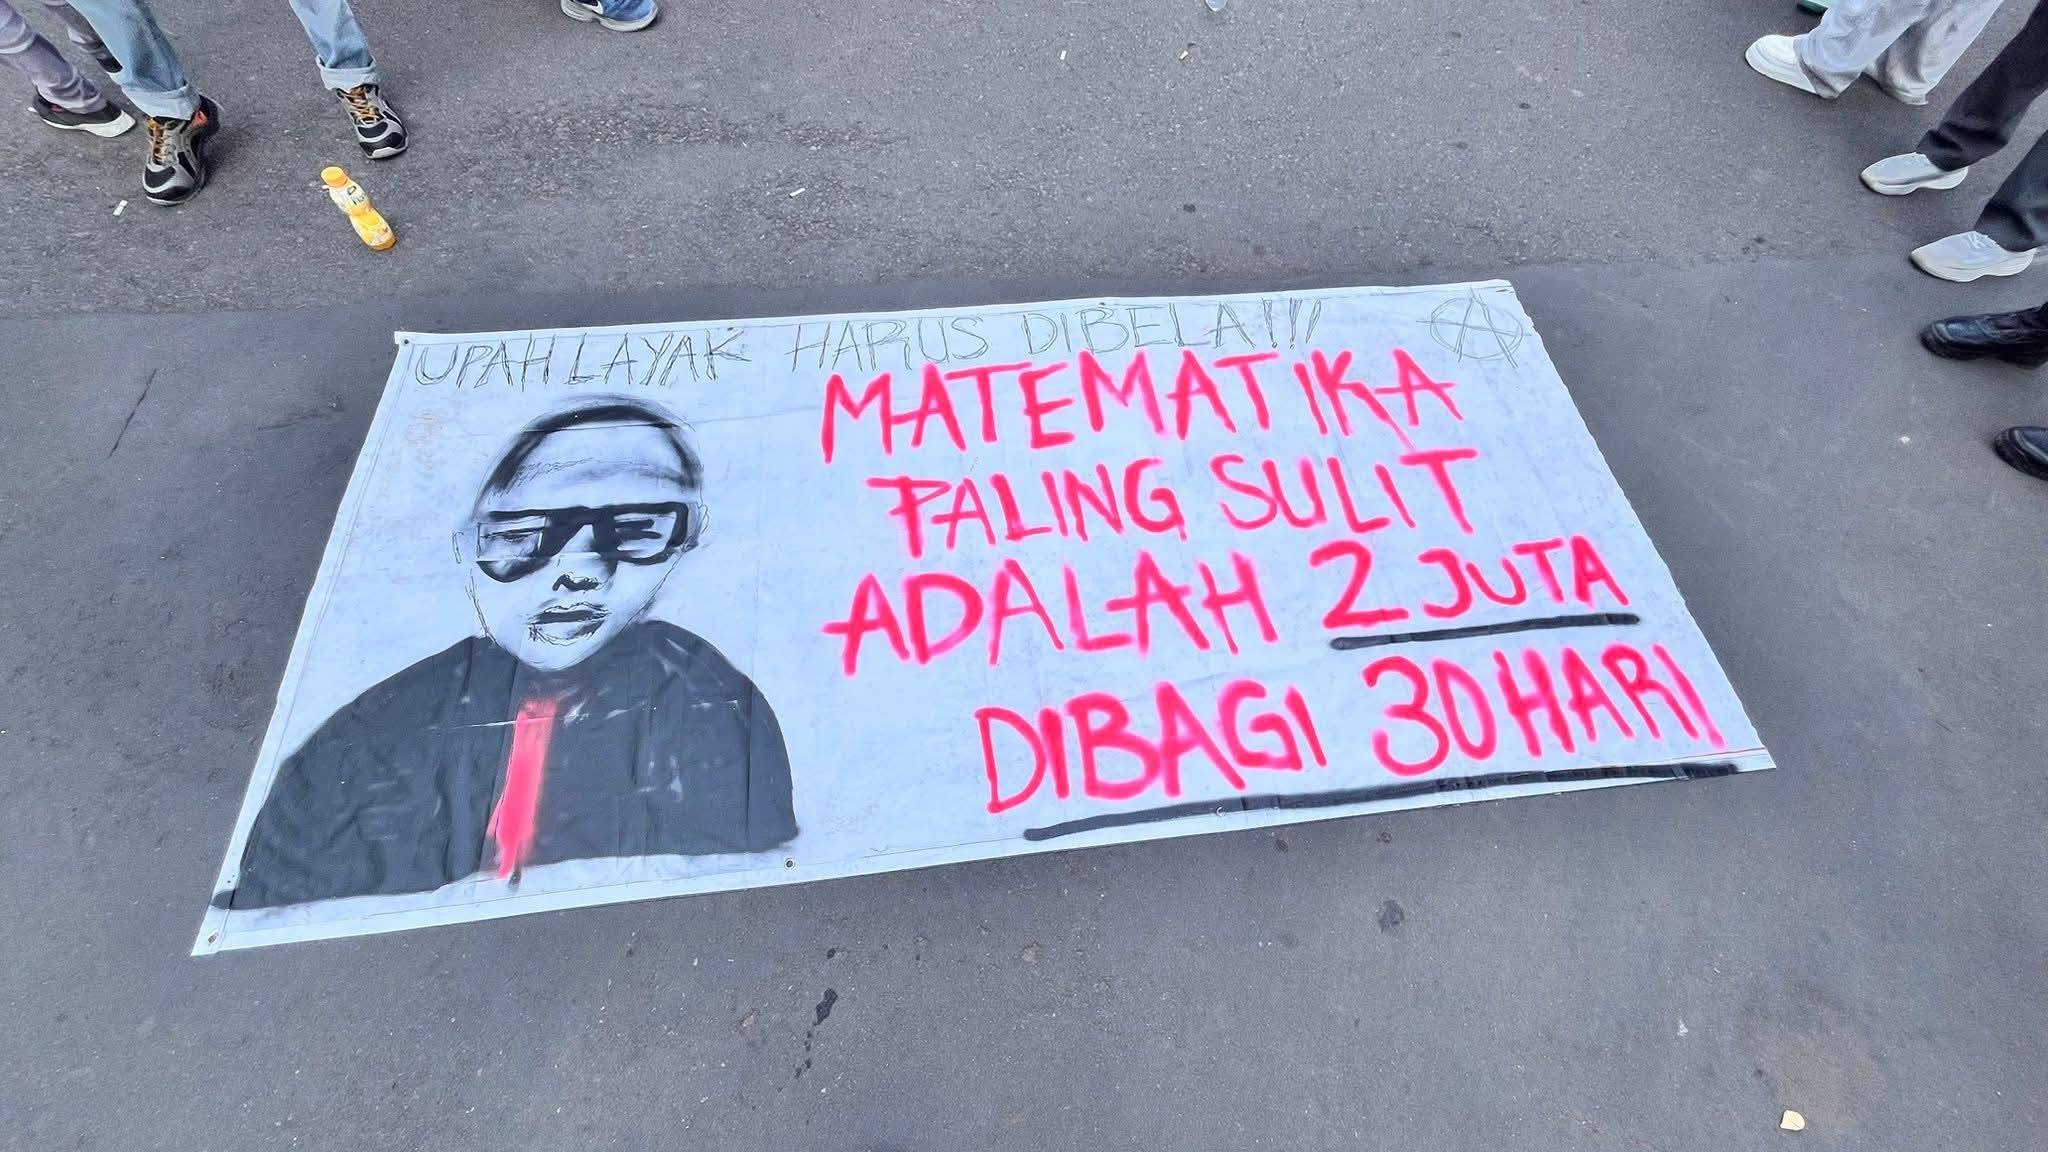 UPAH LAYAK HARUS DIBELA!!!
MATEMATIKA
PALING SULIT
ADALAH 2 JUTA
DIBAGI 30 HARI